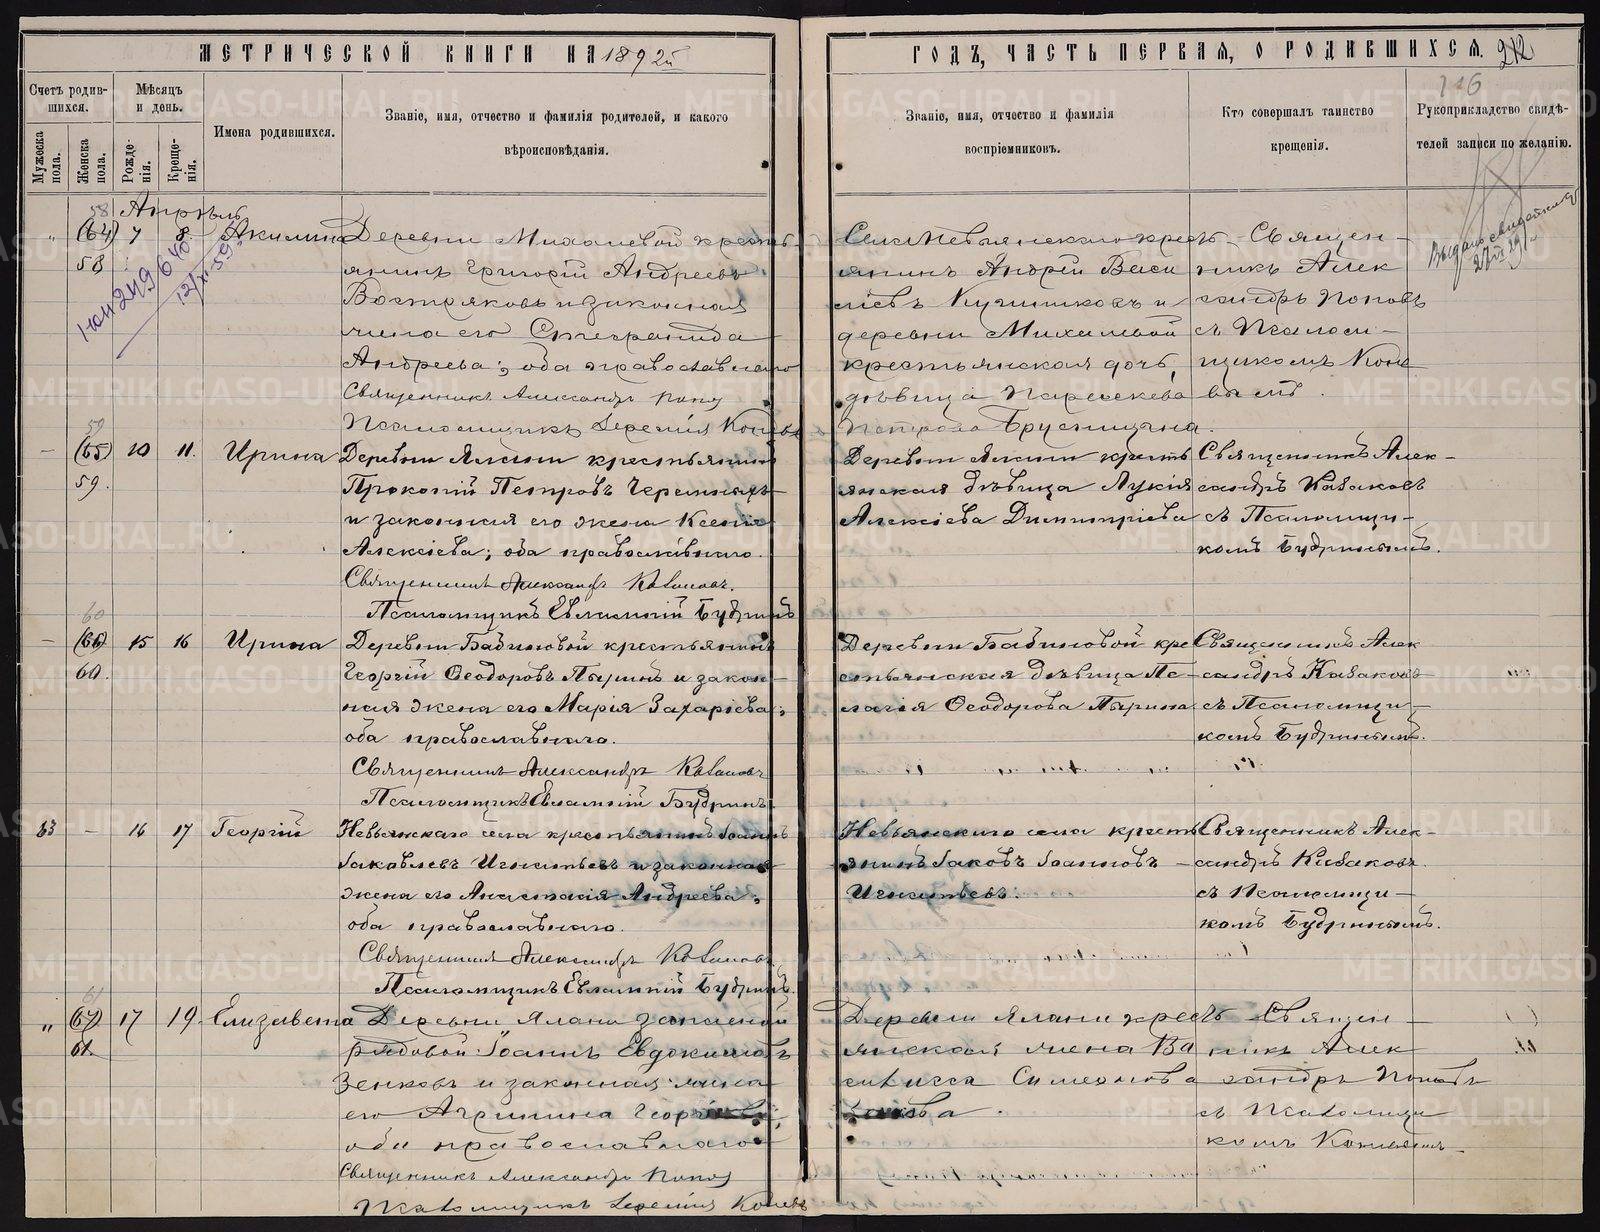 МЕТРИЧЕСКОЙ КНИГИ НА 1892й
ГОДЪ, ЧАСТЬ ПЕРВАЯ, О РОДИВШИХСЯ. 212
Счетъ родив-
шихся.
Мѣсяцъ
и день.
Мужеска
пола.
Женска
пола.
Рожде-
нія.
Креще-
нія.
Имена родившихся.
Званіе, имя, отчество и фамилія родителей, и какого
вѣроисповѣданія.
Званіе, имя, отчество и фамилія
воспріемниковъ.
Кто совершалъ таинство
крещенія.
Рукоприкладство свидѣ-
телей записи по желанію.
Апрѣль
58
(64) 7 8 Акилина
58
Деревни Михалевой кресть
янинъ Григорій Андреевъ
Востряковъ и законная
жена его
Андреева; оба православнаго
Священникъ Александръ Поповъ
Псаломщикъ Коневъ
Села Невьянскаго крест
янинъ Андрей Васи
льевъ и
деревни Михалевой
крестьянская дочь,
дѣвица Параскева
Петрова Брусницына.
Священ-
никъ Алек
сандръ Поповъ
съ Псаломщи-
комъ Коне
вымъ.
59
(65) 10 11. Ирина
59.
Деревни Ялани крестьянинъ
Прокопій Петровъ Черемныхъ
и законная его жена Ксенія
Алексіева; оба православнаго.
Священникъ Александръ Казаковъ.
Псаломщикъ Евлампій Будринъ
Деревни Ялани кресть
янская дѣвица Лукія
Алексіева Димитріева
Священникъ Алек-
сандръ Казаковъ
съ Псаломщи-
комъ Будринымъ.
60
(66) 15 16 Ирина
60.
Деревни Бабиновой крестьянинъ
Георгій Ѳеодоровъ Пыринъ и закон-
ная жена его Марія Захаріева;
оба православнаго.
Священникъ Александръ Казаковъ
Псаломщикъ Евлампій Будринъ
Деревни Бабиновой кре
стьянская дѣвица Пе-
лагія Ѳеодорова Пырина
Священникъ Алек
сандръ Казаковъ
съ Псаломщи-
комъ Будринымъ.
63 - 16 17 Георгій
Невьянскаго села крестьянинъ Іоаннъ
Іаковлевъ Игнатьевъ и законная
жена его Анастасія Андреева;
оба православнаго.
Священникъ Александръ Казаковъ
Псаломщикъ Евлампій Будринъ.
Невьянскаго села кресть
янинъ Іаковъ Іоанновъ
Игнатьевъ.
Священникъ Алек-
сандръ Казаковъ
съ Псаломщи-
комъ Будринымъ.
61
" (67) 17 19. Елизавета
61.
Деревни Ялани запасной
рядовой Іоаннъ Евдокимовъ
Зенковъ и законная жена
его Агриппина
оба православнаго
Священникъ Александръ Поповъ
Псаломщикъ Коневъ
Деревни Ялани крест
янская жена Ва
силисса Симеонова
Священ-
никъ Алек
сандръ Поповъ
съ Псаломщи
комъ Коневымъ